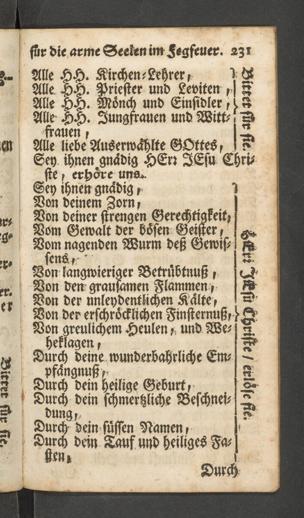 für die arme Seelen im Fegfeuer. 231
Alle HH. Kirchen-Lehrer,
Alle HH. Priester und Leviten,
Alle HH. Mönch und Einsidler,
Alle HH. Jungfrauen und Witt-
frauen,
Alle liebe Auserwählte GOttes,
Bittet für sie.
Sey ihnen gnädig HErr JEsu Chri-
ste, erhöre uns.
Sey ihnen gnädig,
Von deinem Zorn,
Von deiner strengen Gerechtigkeit,
Vom Gewalt der bösen Geister,
Vom nagenden Wurm deß Gewis-
sens,
Von langwieriger Betrübtnuß,
Von den grausamen Flammen,
Von der unleydentlichen Kälte,
Von der erschröcklichen Finsternuß,
Von greulichem Heulen, und We-
heklagen,
Durch deine wunderbahrliche Em-
pfängnuß,
Durch dein heilige Geburt,
Durch dein schmertzliche Beschnei-
dung,
Durch dein süssen Namen,
Durch dein Tauf und heiliges Fa-
sten,
HErr JEsu Christe / erlöse sie.
Durch
Bittet für sie.